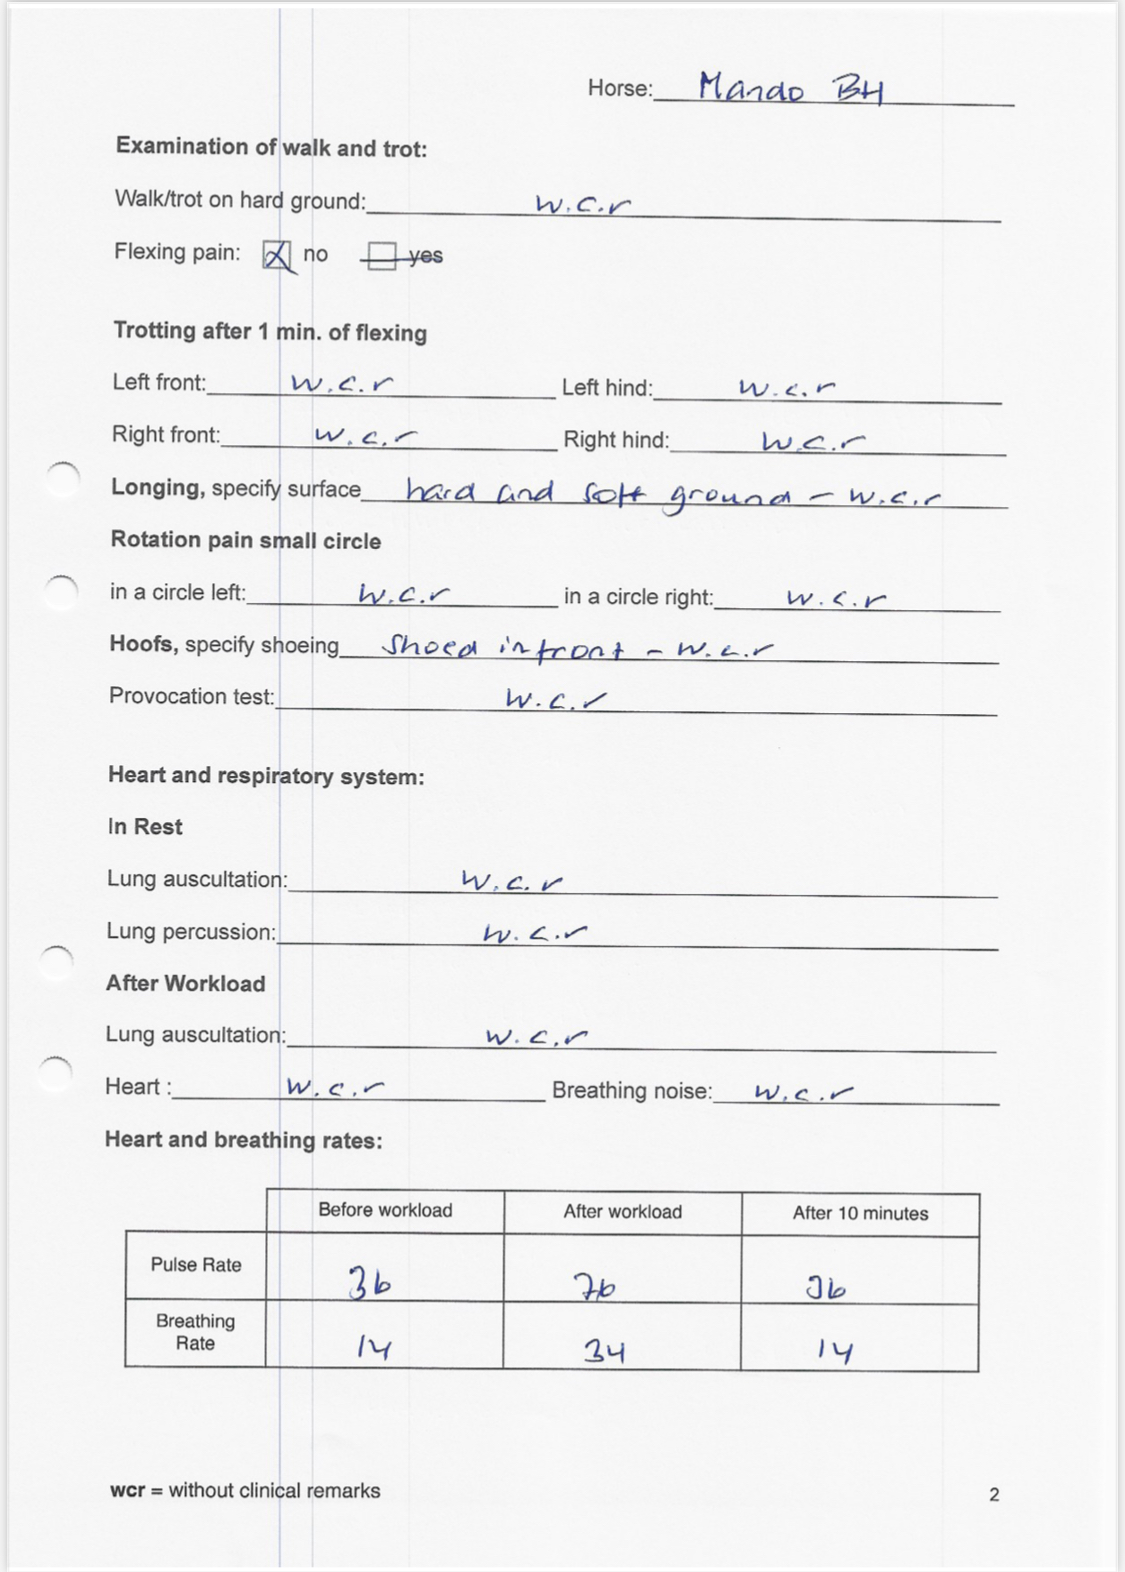 Horse: Mando BH
Examination of walk and trot:
Walk/trot on hard ground: w.c.r
Flexing pain: no yes
Trotting after 1 min. of flexing
Left front: w.c.r Left hind: w.c.r
Right front: w.c.r Right hind: w.c.r
Longing, specify surface hard and soft ground - w.c.r
Rotation pain small circle
in a circle left: w.c.r in a circle right: w.c.r
Hoofs, specify shoeing shoed in front - w.c.r
Provocation test: w.c.r
Heart and respiratory system:
In Rest
Lung auscultation: w.c.r
Lung percussion: w.c.r
After Workload
Lung auscultation: w.c.r
Heart : w.c.r Breathing noise: w.c.r
Heart and breathing rates:
Before workload After workload After 10 minutes
Pulse Rate 36 76 36
Breathing
Rate 14 34 14
wcr = without clinical remarks 2